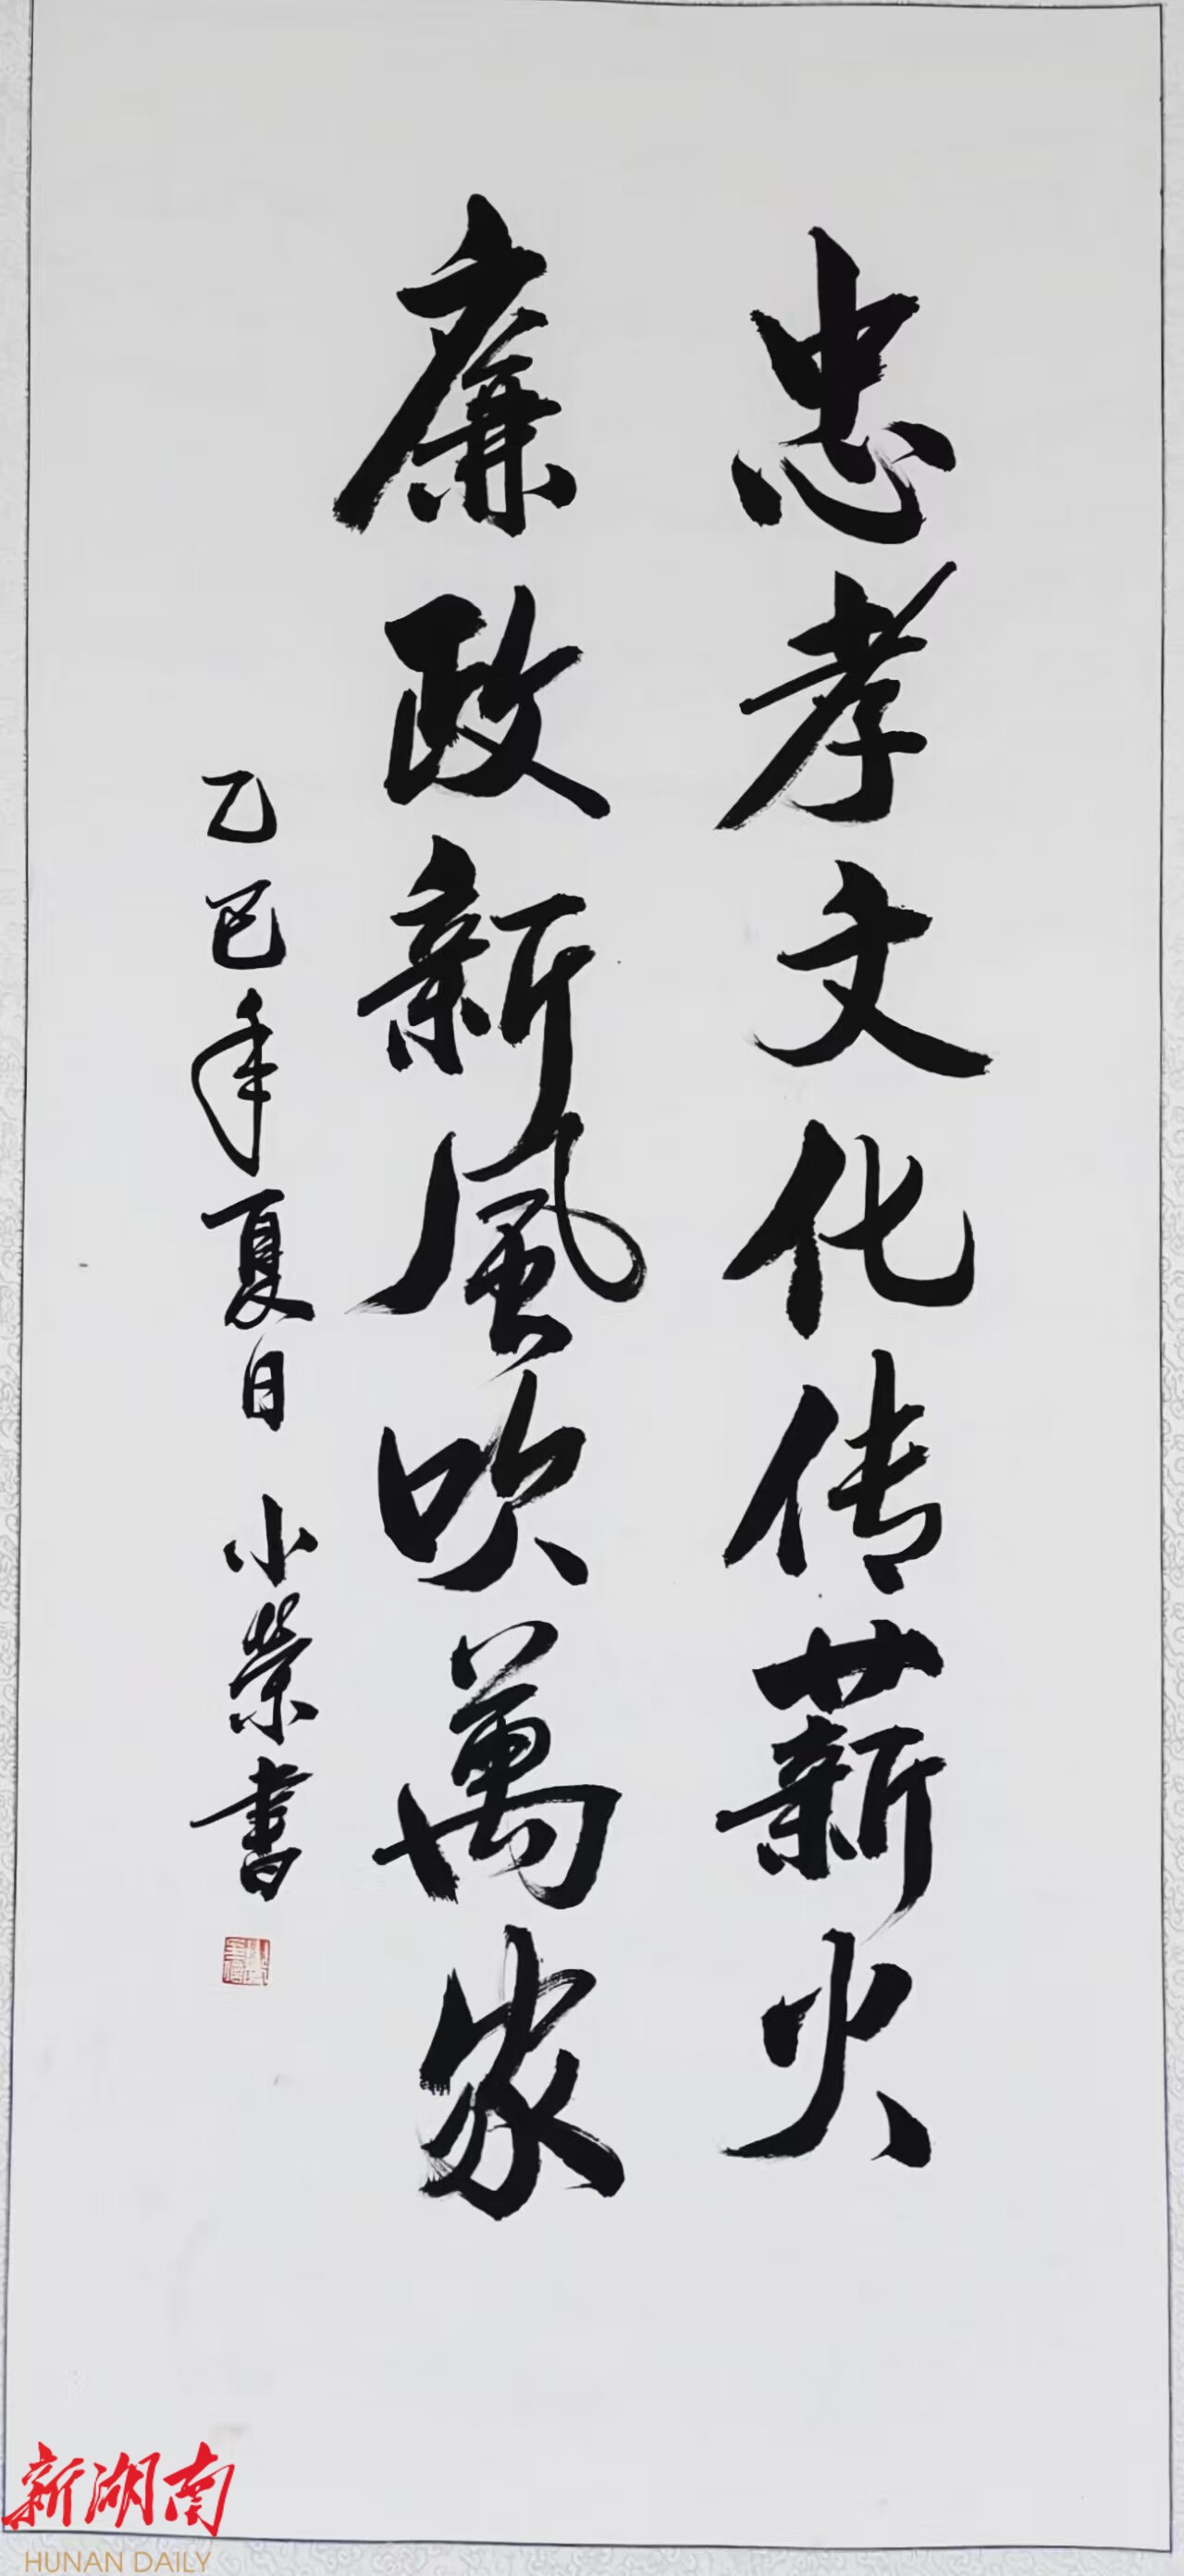 忠孝文化传薪火
廉政新風吹萬家
乙巳年夏日 小荣書
新湖南
HUNAN DAILY